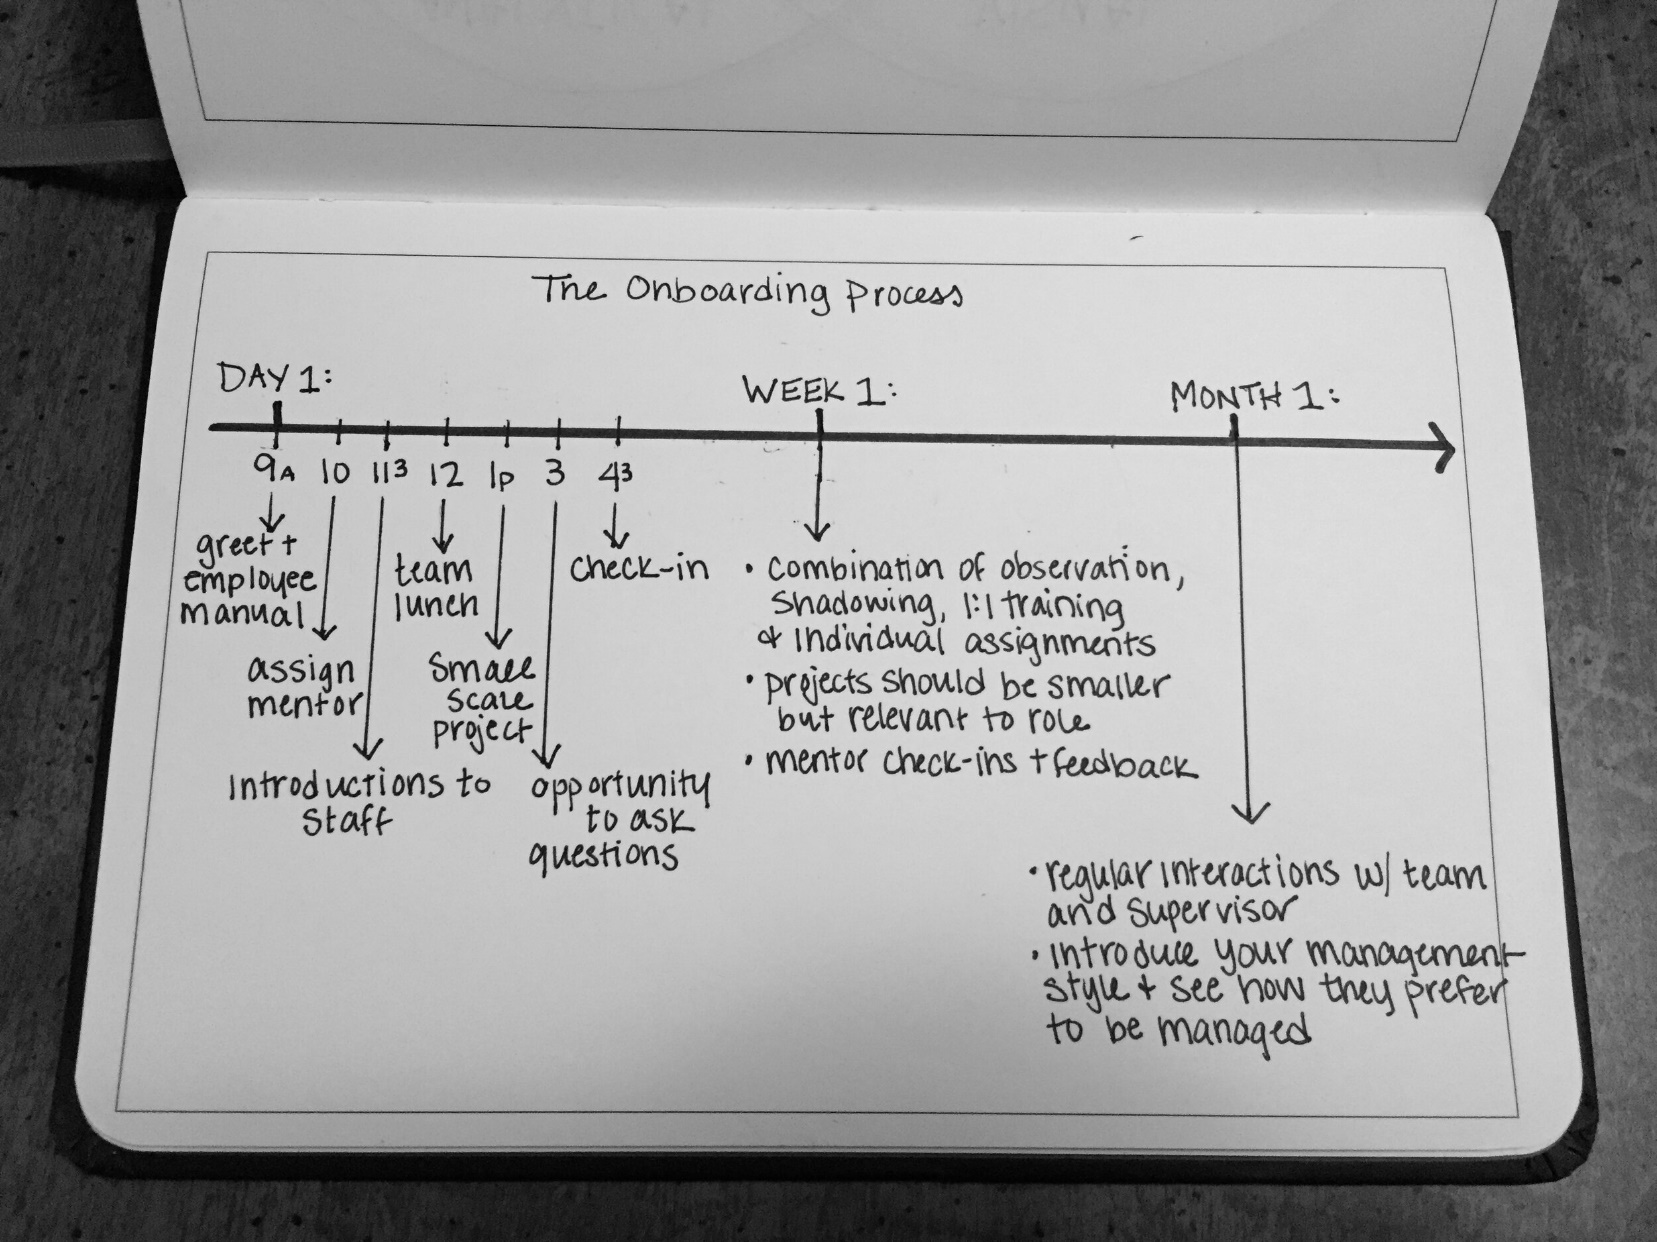 The Onboarding Process
DAY 1:
WEEK 1:
MONTH 1:
9A 10 11³ 12 1p 3 4³
greet +
employee
manual
assign
mentor
Introductions to
staff
team
lunch
small
scale
project
opportunity
to ask
questions
check-in
• combination of observation,
shadowing, 1:1 training
& individual assignments
• projects should be smaller
but relevant to role
• mentor check-ins + feedback
• regular interactions w/ team
and supervisor
• introduce your management
style + see how they prefer
to be managed